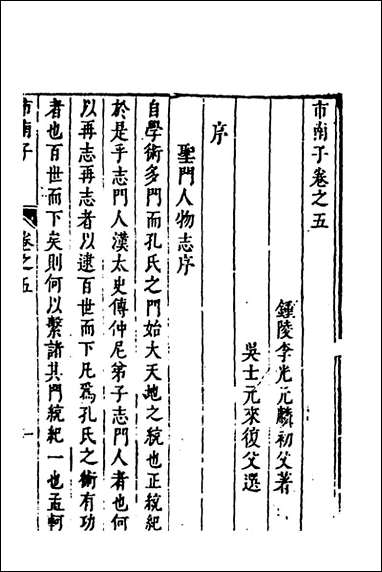 市南子卷之五
鍾陵李光元麟初父著
吳士元來復父選
序
聖門人物志序
自學術多門而孔氏之門始大天地之統也正統紀
於是乎志門人漢太史傳仲尼弟子志門人者也何
以再志再志者以逮百世而下凡爲孔氏之術有功
者也百世而下矣則何以繫諸其門統紀一也孟軻
市南子
卷之五
一